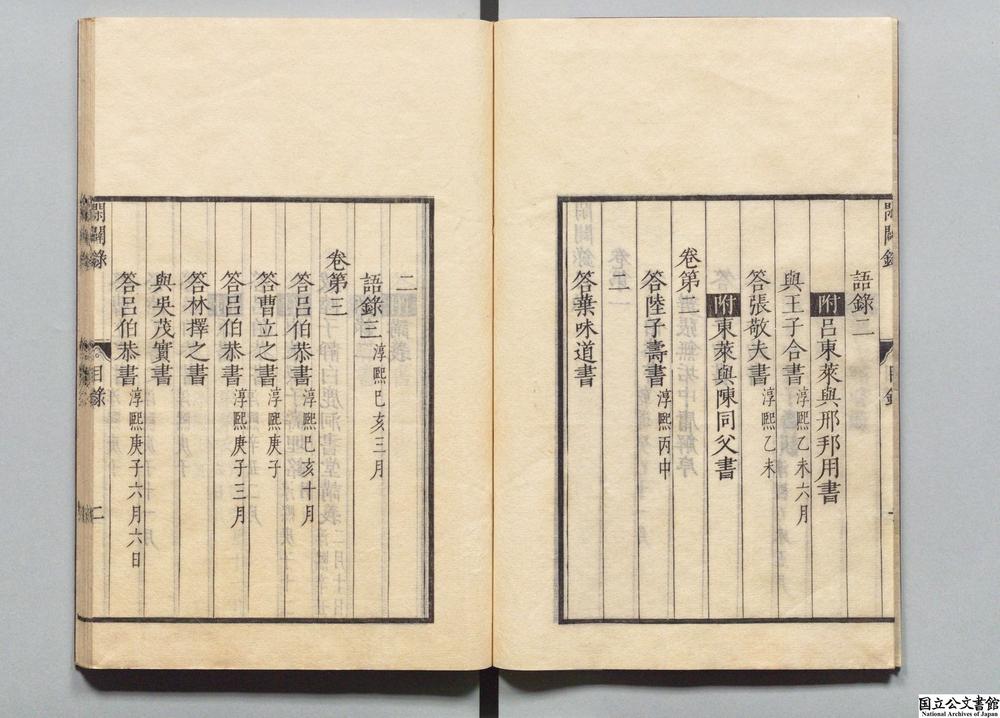 語錄二
附呂東萊與邢邦用書
與王子合書淳熙乙未六月
答張敬夫書淳熙乙未
附東萊與陳同父書
卷第二
答陸子壽書淳熙丙申
一
答葉味道書
二
語錄三淳熙巳亥三月
卷第三
答呂伯恭書淳熙巳亥十月
答曹立之書淳熙庚子
答呂伯恭書淳熙庚子三月
答林擇之書
與吳茂實書
答呂伯恭書淳熙庚子六月六日
閑闢錄
目錄
二
国立公文書館
National Archives of Japan